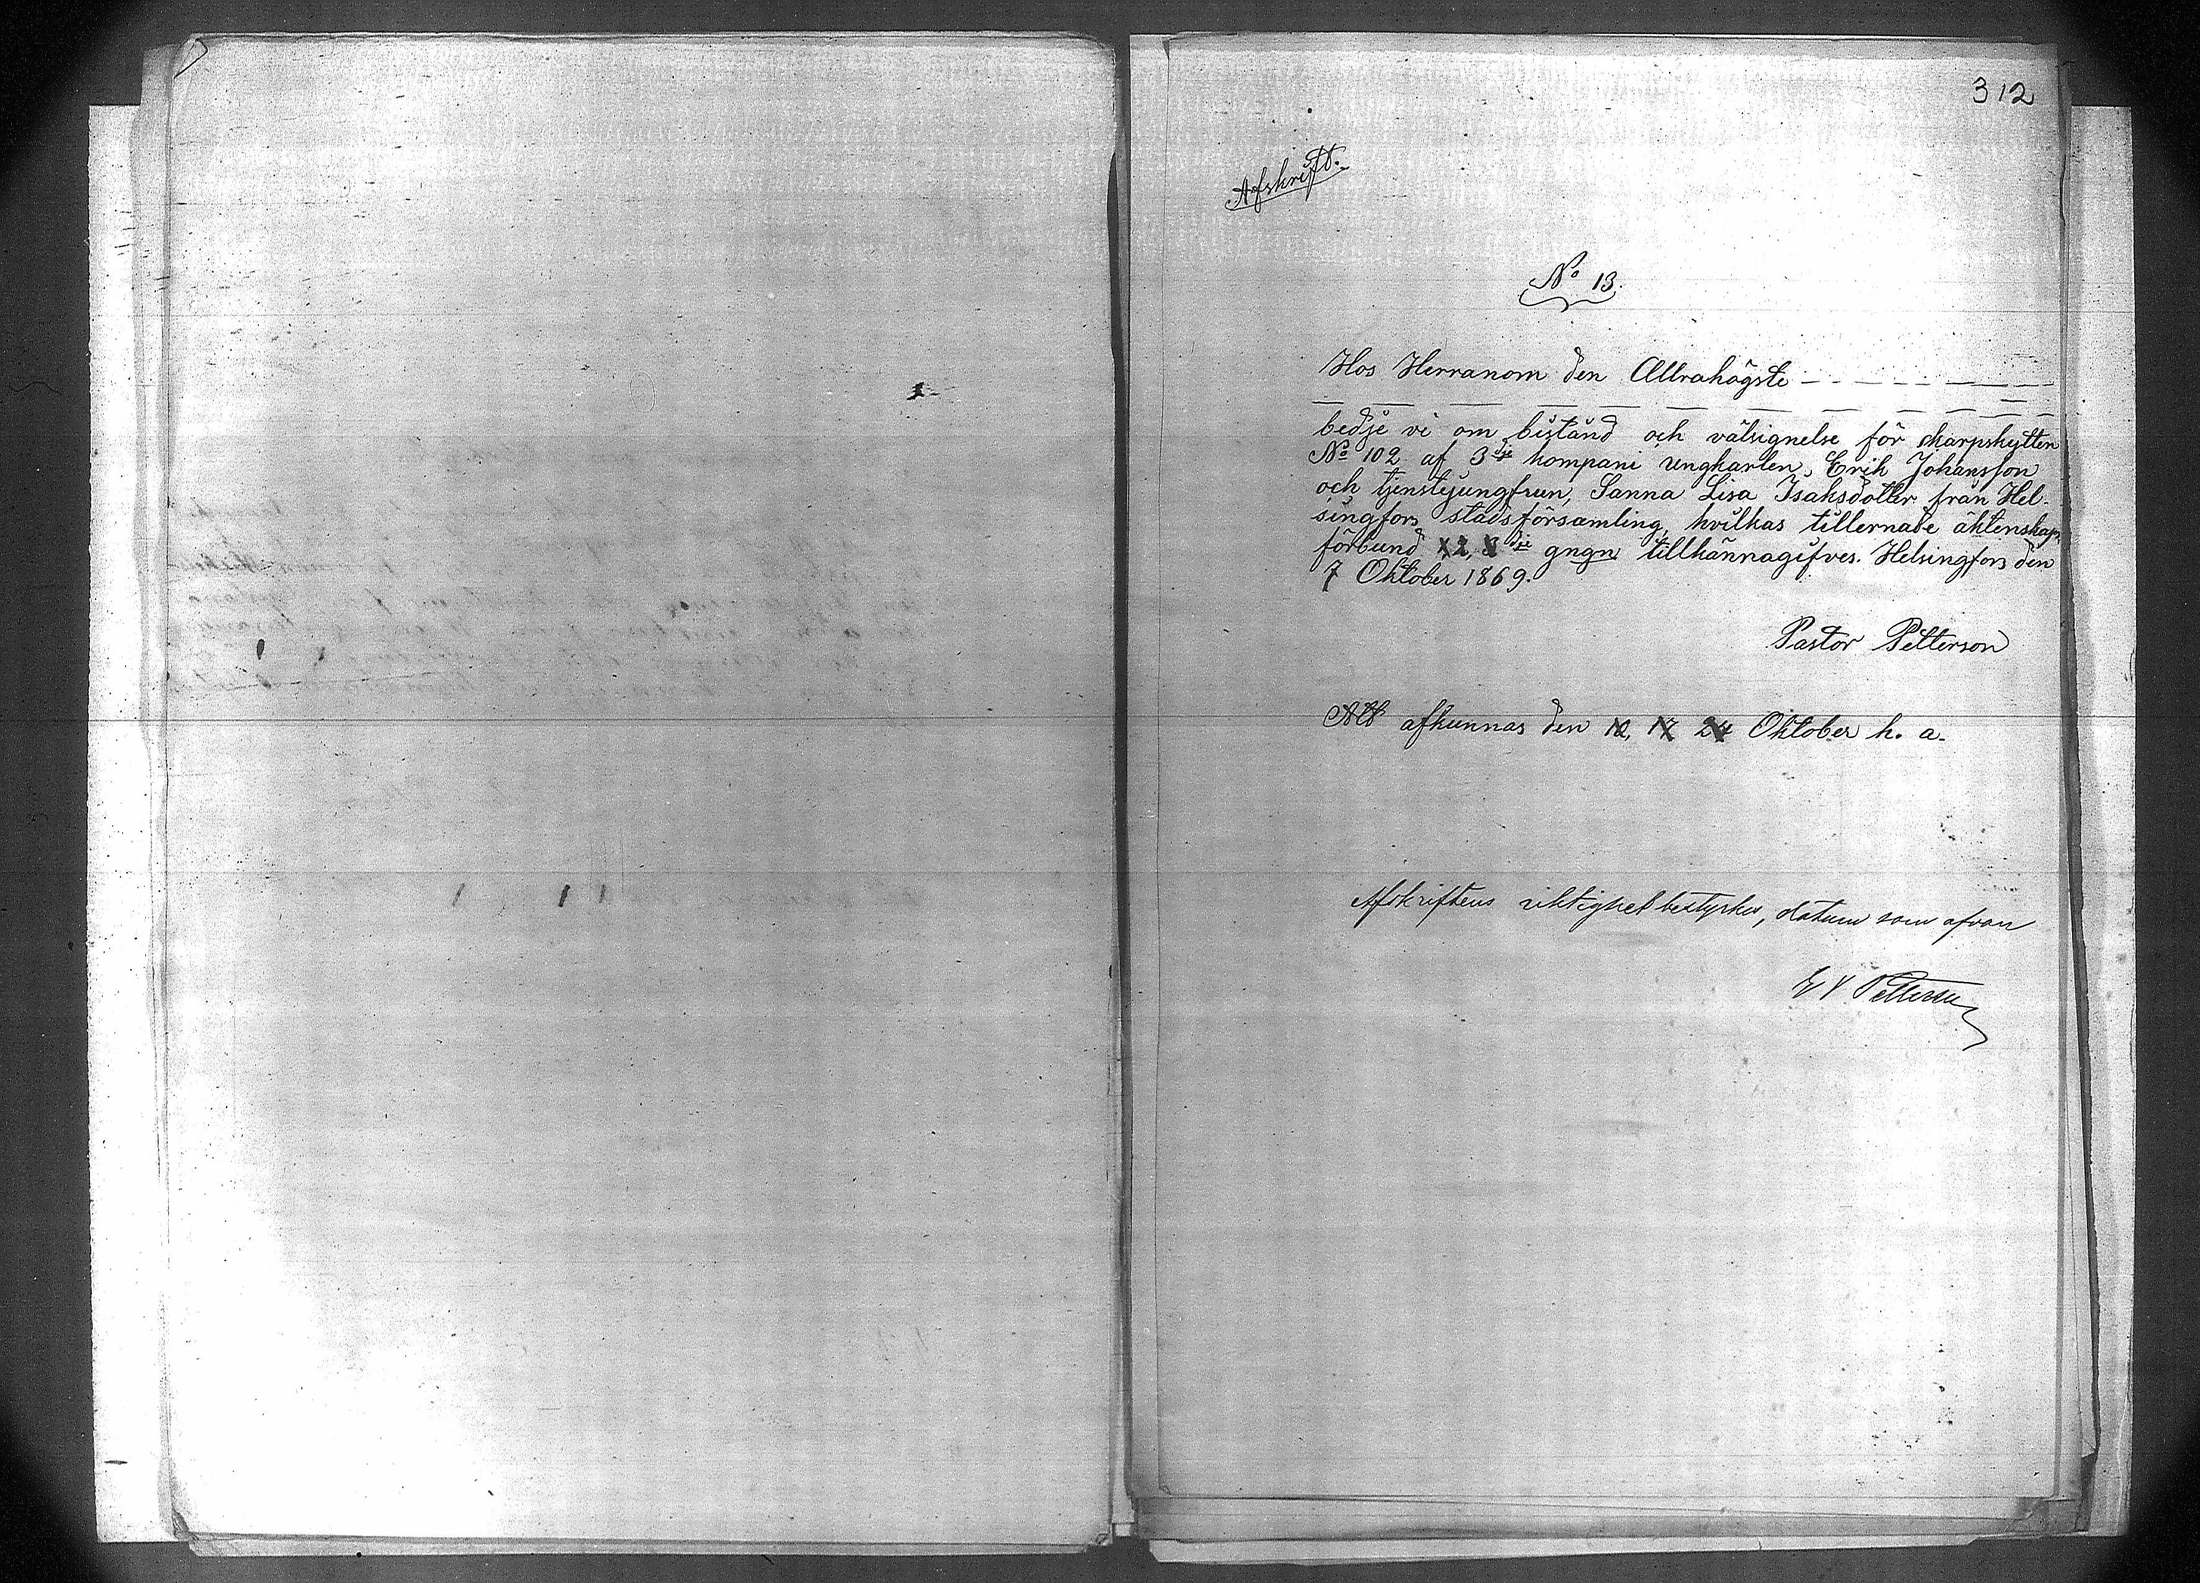 312
Afskrift.
No 13.
Hos Herranom den Allrahögste
bedje vi om bistånd och välsignelse för skarpskytten
No 102 af 3dje kompani ungkarlen, Erik Johansson
och tjenstejungfrun, Sanna Lisa Isaksdotter från Hel-
singfors stadsförsamling, hvilkas tillernade äktenskaps
förbund 1, 2, 3dje gngn tillkännagifves. Helsingfors den
7 Oktober 1869.
Pastor Petterson
Att afkunnas den 10, 17 24 Oktober h. a.
Afskriftens riktighet bestyrkes, datum som ofvan
Petterson